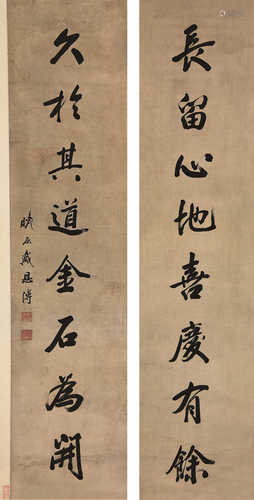 長留心地喜慶有餘
久於其道金石為開
戴恩溥